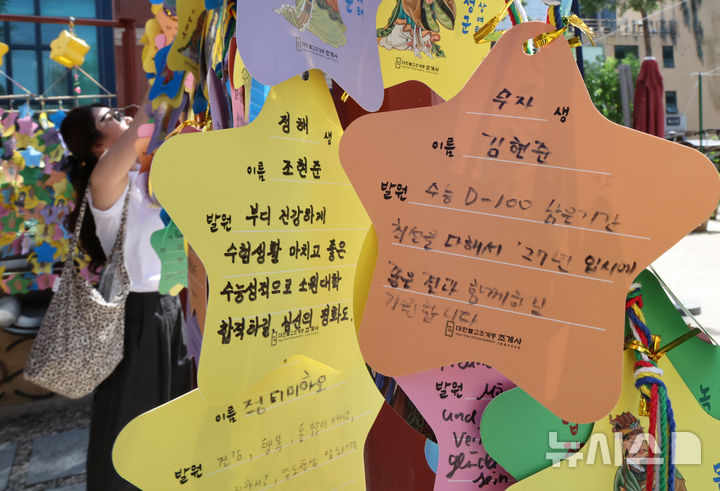 대한불교조계종 조계사
정해 생
이름 조현준
발원 부디 건강하게
수험생활 마치고 좋은
수능성적으로 소원대학
합격하길, 심신의 평화도.
대한불교조계종 조계사
JOGYESA
생
이름 김현준
발원 수능 D-100 남은기간
최선을 다해서 '27년 입시에
좋은 결과 함께하길
기원합니다
대한불교조계종 조계사
JOGYESA
이름
발원 건강, 행복,
발원
und
Glück
sein
뉴시스